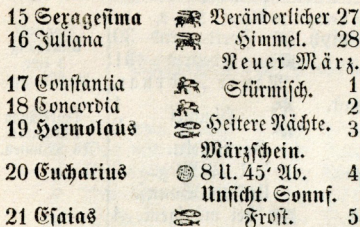 15 Sexagesima Veränderlicher 27
16 Juliana Himmel. 28
Neuer März.
17 Constantia Stürmisch. 1
18 Concordia 2
19 Hermolaus Heitere Nächte. 3
Märzschein.
20 Eucharius 8 U. 45′ Ab. 4
Unsicht. Sonnf.
21 Esaias Frost. 5